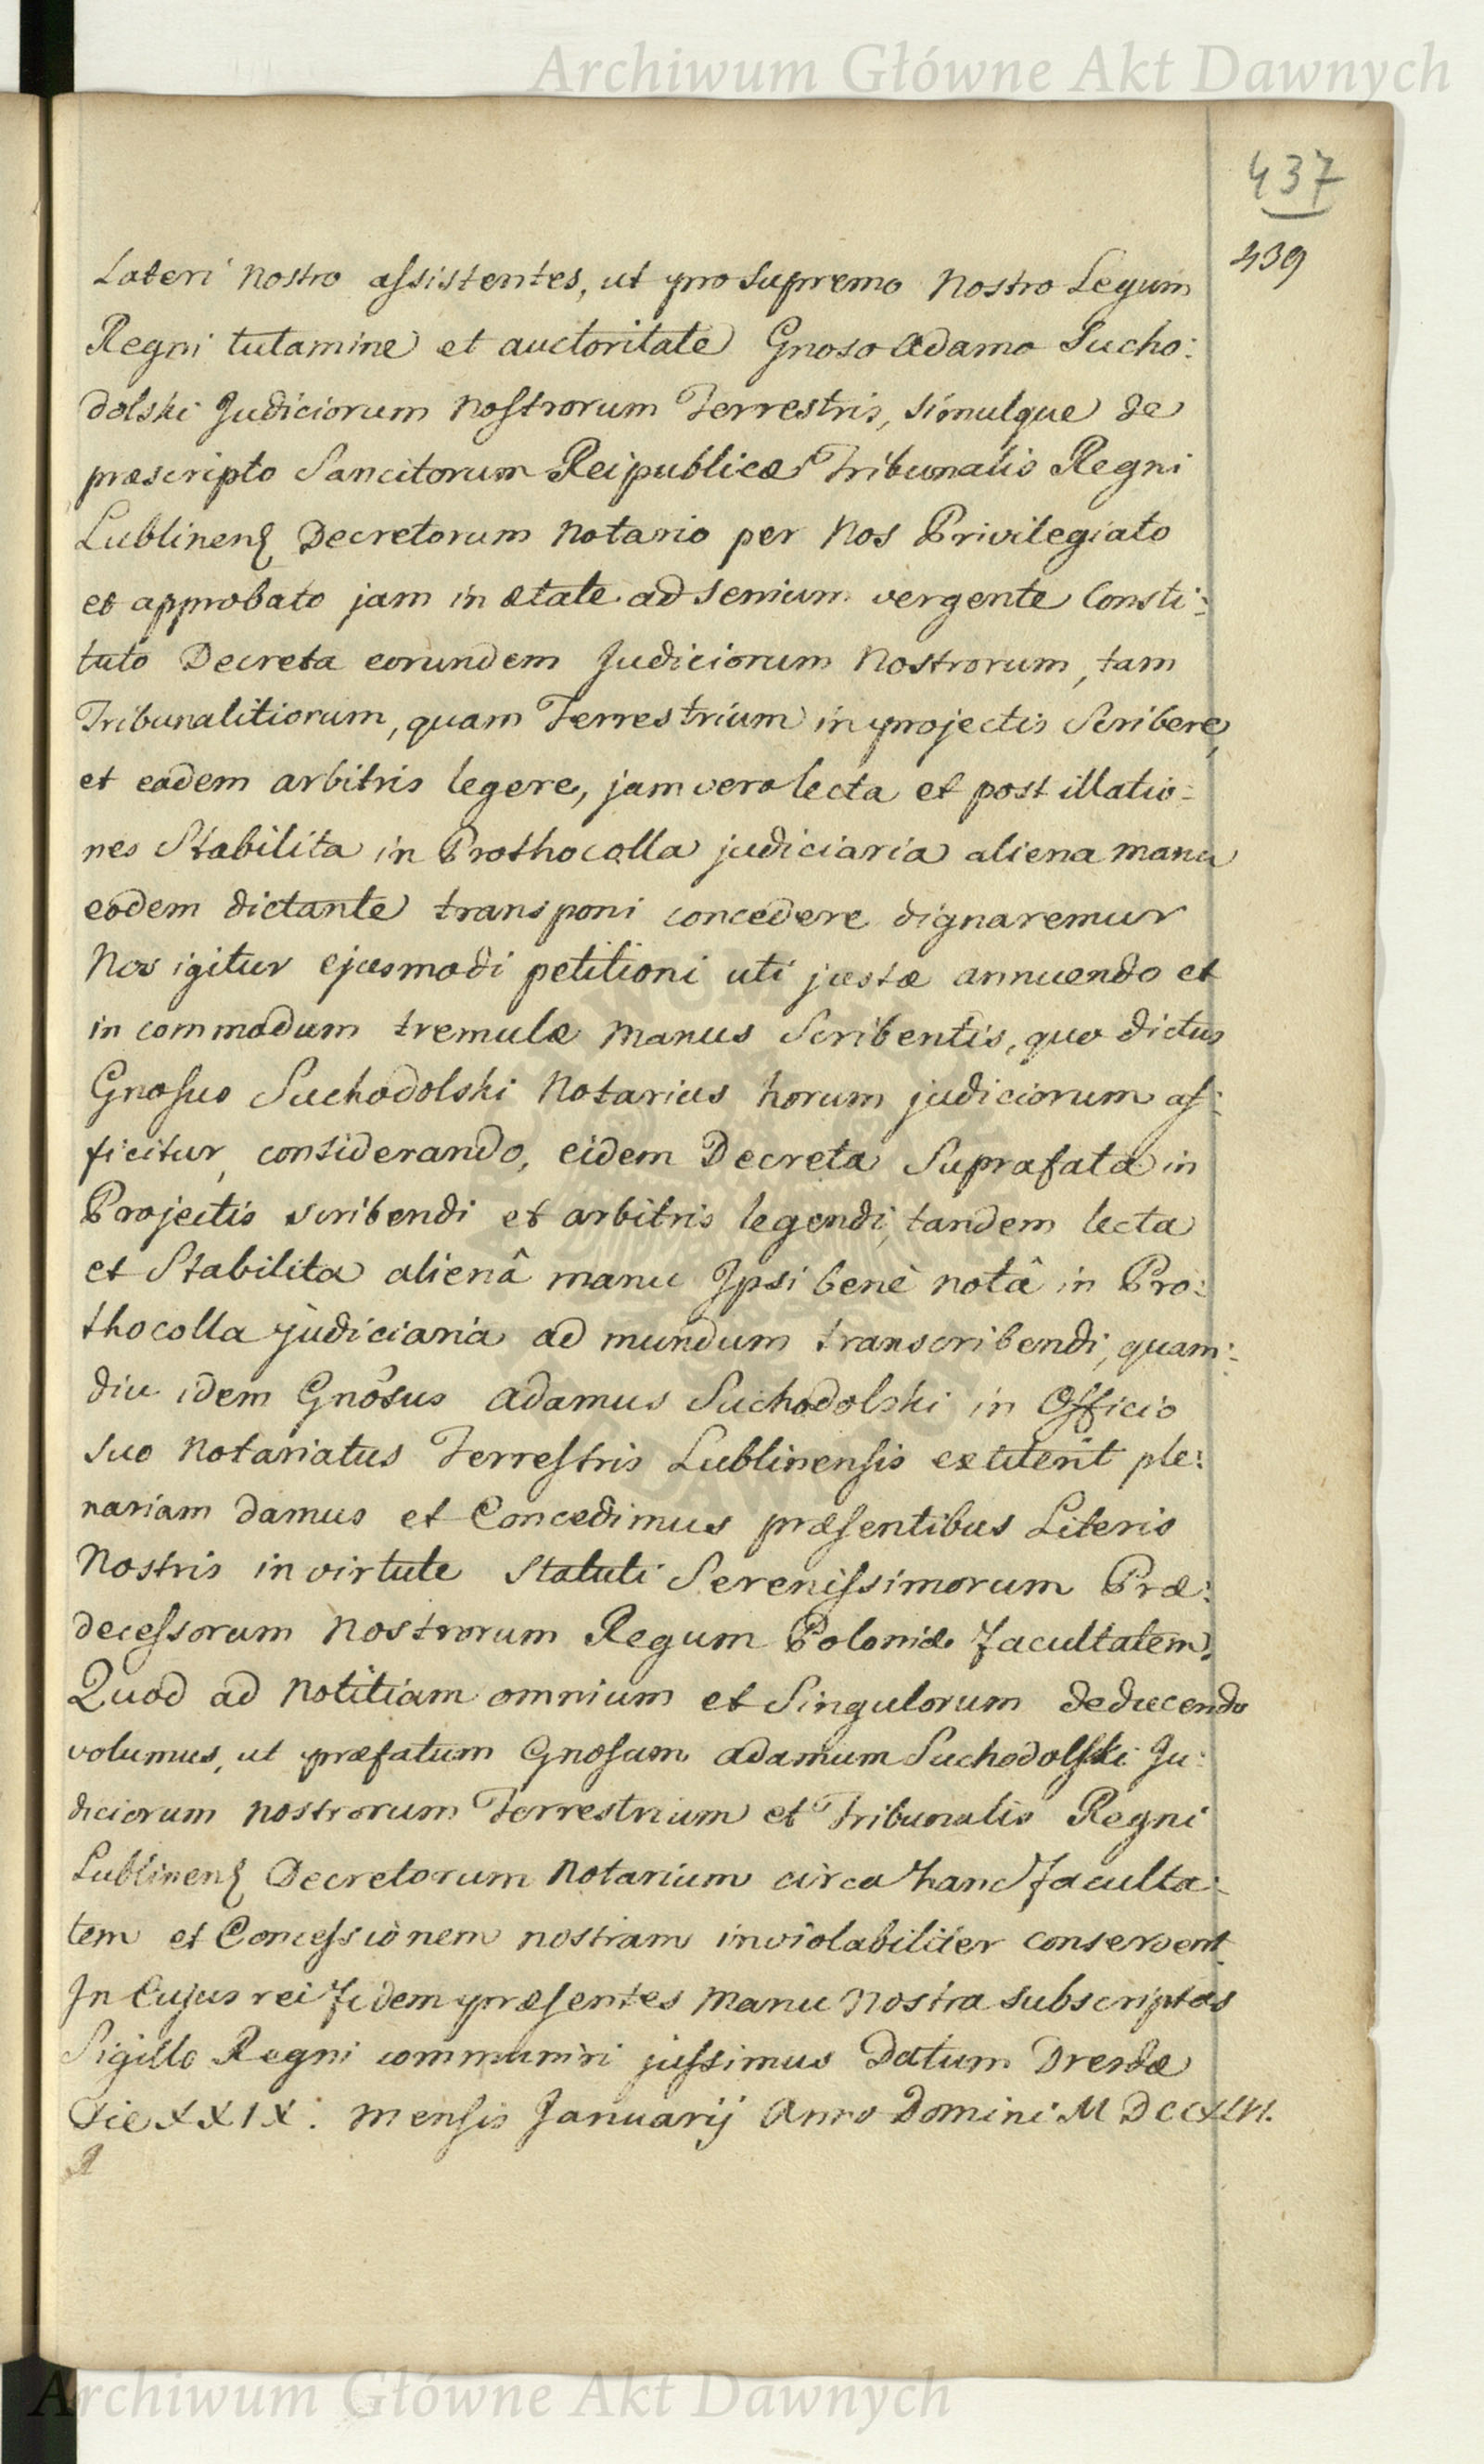 Archiwum Główne Akt Dawnych
437
439
Lateri nostro assistentes, ut pro supremo Nostro Legum
Regni tutamine et auctoritate Gnoso Adamo Sucho:
dolski Judiciorum Nostrorum Terrestris, simulque de
præscripto Sancitorum Reipublicæ Tribunalis Regni
Lublinens Decretorum Notario per Nos Privilegiato
et approbato jam in ætate ad senium vergente Consti:
tuto Decreta eorundem Judiciorum Nostrorum, tam
Tribunalitiorum, quam Terrestrium in projectis Scribere,
et eadem arbitris legere, jam vero lecta et post illatio:
nes Stabilita in Prothocolla judiciaria aliena manu
eodem dictante transponi concedere dignaremur
Nos igitur ejusmodi petitioni uti justæ annuendo et
in commodum tremulæ manus Scribentis, quo dictus
Gnosus Suchodolski Notarius horum judiciorum af:
ficitur, considerando, eidem Decreta Suprafata in
Projectis scribendi et arbitris legendi, tandem lecta
et Stabilita alienâ manu Ipsi benè notâ in Pro:
thocolla judiciaria ad mundum transcribendi, quam:
diu idem Gnosus Adamus Suchodolski in Officio
suo Notariatus Terrestris Lublinensis extiterit ple:
nariam damus et Concedimus præsentibus Literis
Nostris in virtute Statuti Serenissimorum Præ:
decessorum Nostrorum Regum Poloniæ facultatem.
Quod ad Notitiam omnium et Singulorum deducendo
volumus, ut præfatum Gnosum Adamum Suchodolski Ju:
diciorum nostrorum Terrestrium et Tribunalis Regni
Lublinens Decretorum Notarium circa hanc faculta:
tem et Concessionem nostram inviolabiliter conservent.
In Cujus rei fidem præsentes Manu Nostra subscriptas
Sigillo Regni communiri jussimus Datum Dresdæ
Die XXIX. mensis Januarij Anno Domini MDCCXLVI.
Archiwum Główne Akt Dawnych